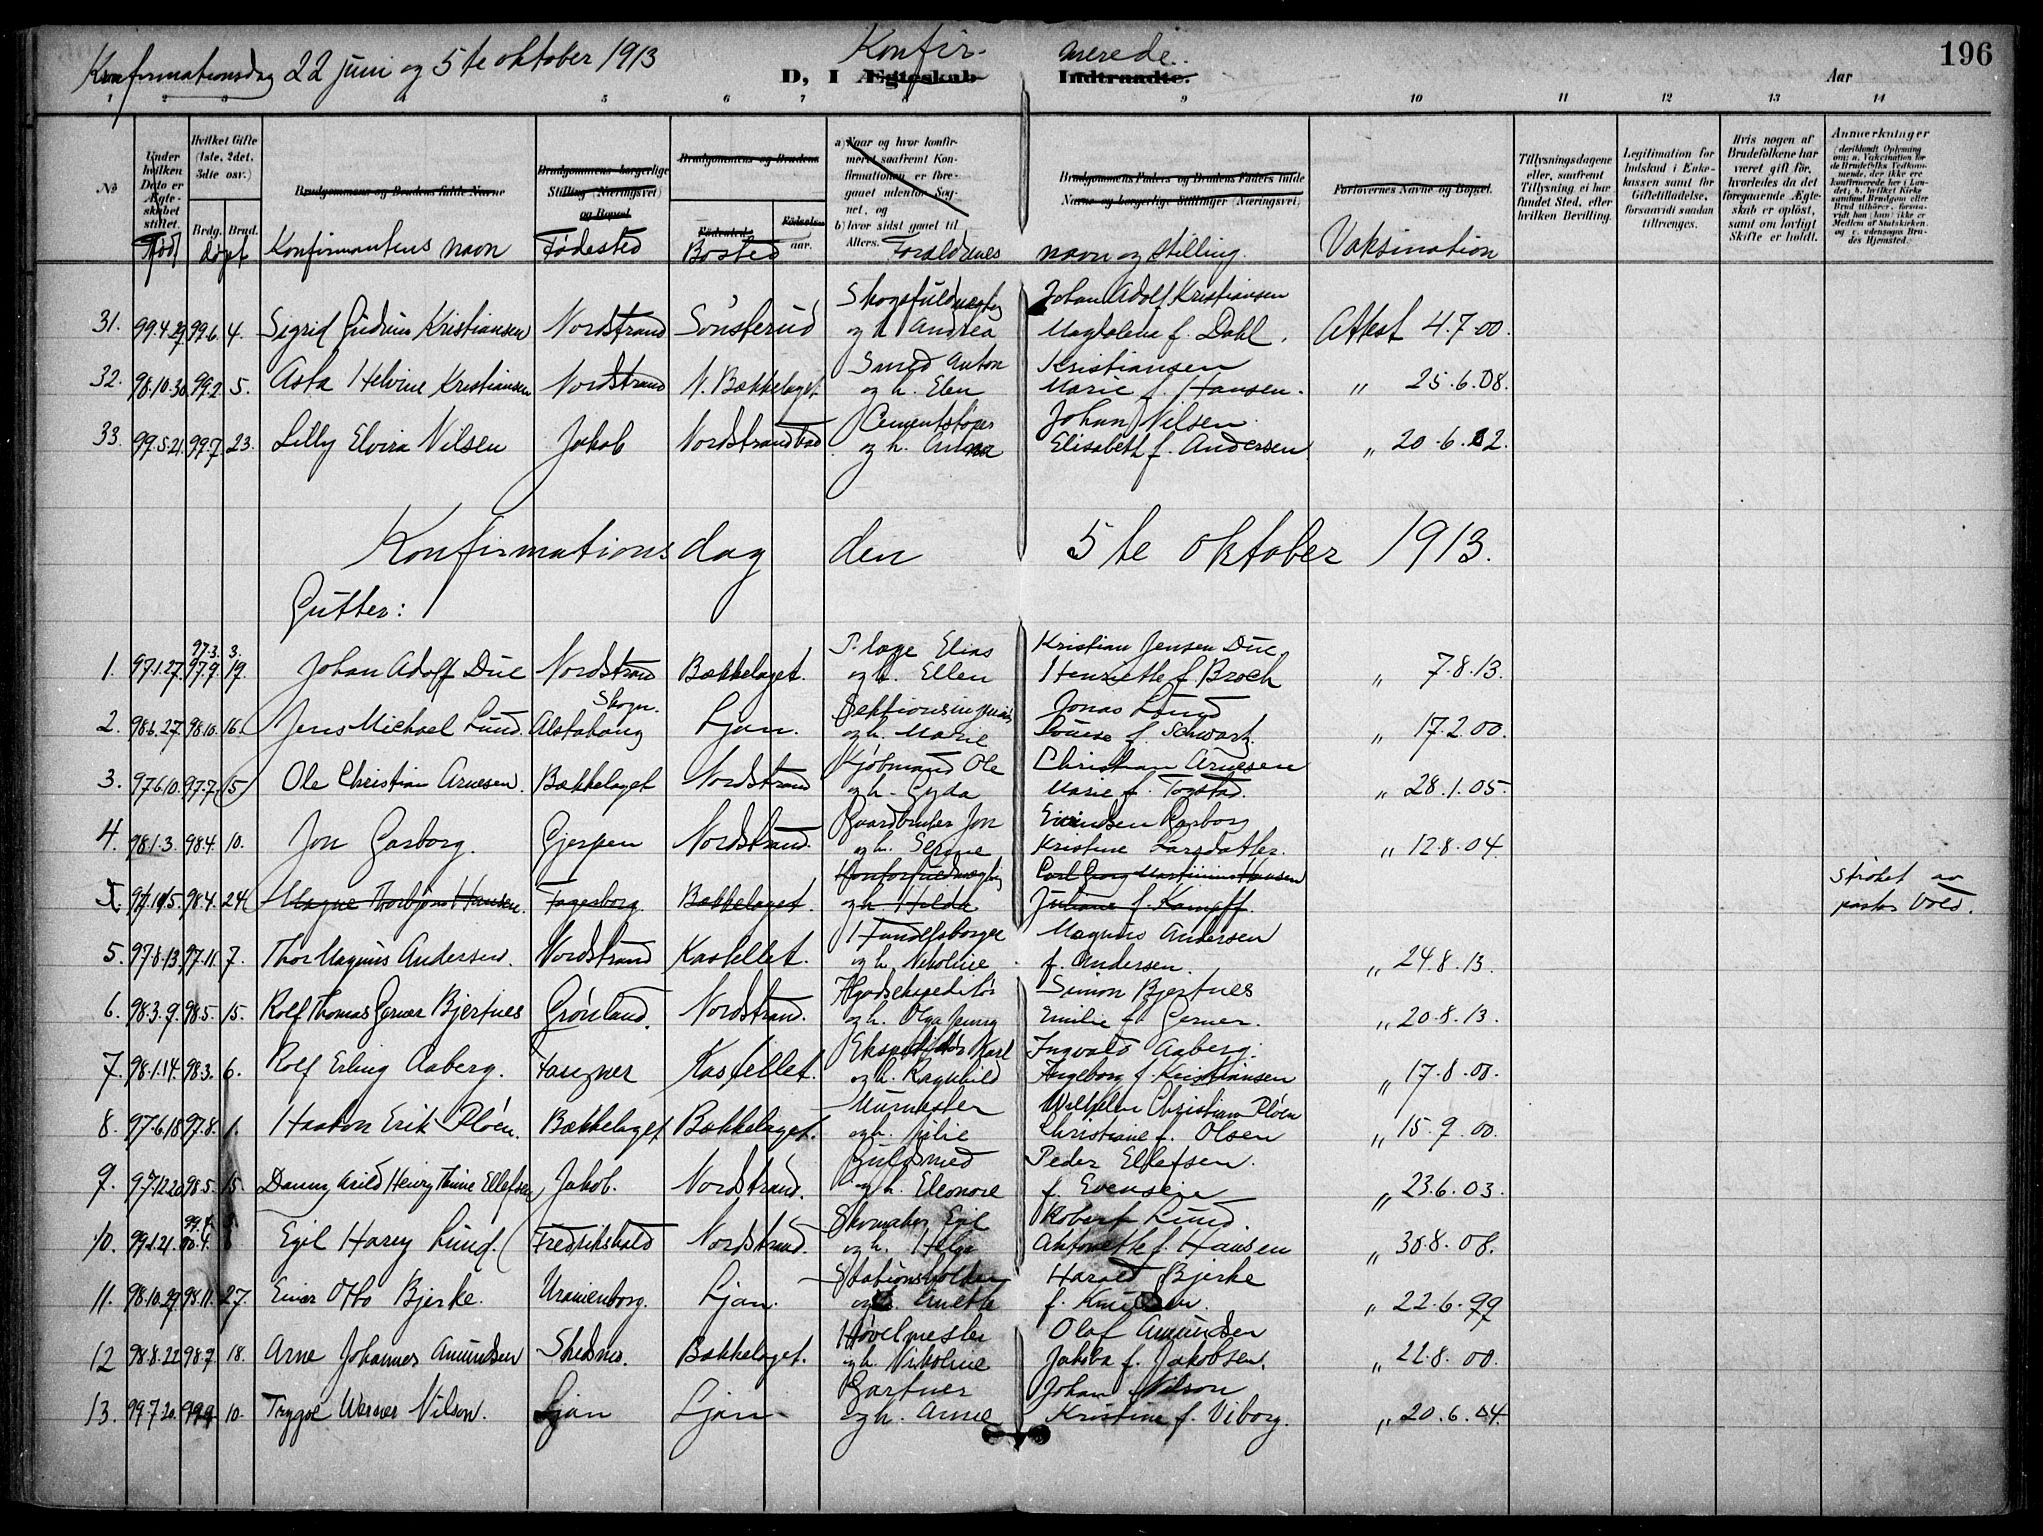 Konfirmationsdag 22 juni og 5te oktober 1913
Konfir- merede.
D, I Ægteskab Indtraadte.
Aar
196
1 2 3 4 5 6 7 8 9 10 11 12 13 14
No
Under hvilken Dato er Ægteskabet stiftet.
Hvilket Gifte (1ste, 2det, 3dte osv.)
Brdg. Brud.
Brudgommens og Brudens fulde Navne
Brudgommens borgerlige Stilling (Næringsvei) og Bopæl
Brudgommens og Brudens
Fødested. Fødselsaar.
a) Naar og hvor konfirmeret saafremt Konfirmationen er foregaaet udenfor Sognet, og
b) hvor sidst gaaet til Alters.
Brudgommens Faders og Brudens Faders fulde Navne og borgerlige Stillinger (Næringsvei)
Forlovernes Navne og Bopæl.
Tillysningsdagene eller, saafremt Tillysning ei har fundet Sted, efter hvilken Bevilling.
Legitimation for Indskud i Enkekassen samt for Giftetilladelse, forsaavidt saadan tiltrænges.
Hvis nogen af Brudefolkene har været gift før, hvorledes da det foregaaende Ægteskab er opløst, samt om lovligt Skifte er holdt.
Anmerkninger (deriblandt Oplysning om: a. Vakcination for de Brudefolks Vedkommende, der ikke ere konfirmerede her i Landet; b. hvilket Kirkesamfund Brudgom eller Brud tilhører, forsaavidt han (hun) ikke er Medlem af Statskirken, og c. udensogns Brudes Hjemsted.
Født døpt Konfirmantens navn Fødested Bosted Forældrenes navn og stilling. Vaksination
Skogsfuldmægtig Johan Adolf Kristiansen
31. 99.4.29 99.6. 4. Sigrid Gudrun Kristiansen Nordstrand Sønsterud og h. Andrea Magdalena f. Dahl. Attest 4.7.00.
Smed Anton Kristiansen
32. 98.10.30 99.2. 5. Asta Helvine Kristiansen Nordstrand N. Bækkelaget og h. Elen Marie f. Hansen. " 25.6.08.
Cementstøper Johan Nilsen
33. 99.5.21. 99.7. 23. Lilly Elvira Nilsen Jakob Nordstrandbad og h. Anna Elisabeth f. Andersen " 20.6.02.
Konfirmationsdag den 5te oktober 1913.
Gutter:
97.3. 3. Elias Kristian Jensen Due
1. 97.1.27. 97.9. 19. Johan Adolf Due Nordstrand Bækkelaget. og h. Ellen Henriette f. Broch " 7.8.13.
Skogn. Sektionsingeniør Jonas Lund
2. 98.6.27. 98.10. 16. Jens Michael Lund. Alstahaug Ljan. og h. Marie Louise f. Schwartz. " 17.2.00.
Kjøbmand Ole Christian Arnesen
3. 97.6.10. 97.7. 15 Ole Christian Arnesen. Bækkelaget Nordstrand og h. Gyda Marie f. Togstad. " 28.1.05.
Gaardbruker Jon Eivindsen Garborg
4. 98.1.3. 98.4. 10. Jon Garborg. Gjerpen Nordstrand. og h. Serine Kristine Larsdatter. " 12.8.04.
Kontorfuldmægtig Carl Georg Martinius Hansen strøket av
98.4. 24 Magne Thorbjørn Hansen. Fagerborg Bækkelaget. og h. Hilda Juliane f. Kampff pastor Vold.
Magnus Andersen
5. 97.8.13. 97.11. 7. Thor Magnus Andersen. Nordstrand Kastellet. og h. Nikoline f. Andersen. " 24.8.13.
Simon Bjertnes
6. 98.3.9. 98.5. 15. Rolf Thomas Gerner Bjertnes Grønland. Nordstrand. og h. Olga Jenny Emilie f. Gerner. " 20.8.13.
Ekspeditør Karl Ingvald Aaberg.
7. 98.1.14. 98.3. 6. Rolf Erling Aaberg. Kastellet. og h. Ragnhild Ingeborg f. Kristiansen " 17.8.00.
Murmester Wilhelm Christian Pløen
8. 97.6.18 97.8. 1. Haakon Erik Pløen. Bækkelaget Bækkelaget. og h. Julie Christiane f. Olsen " 15.9.00.
Guldsmed Peder Ellefsen.
9. 97.12.20 98.5. 15. Danny Arild Henry Thinne Ellefsen Jakob. Nordstrand. og h. Eleonore f. Evensen " 23.6.03.
Skomaker Egil Robert Lund.
10. 99.1.21. Egil Harry Lund. Fredrikshald Nordstrand. og h. Helga Antonette f. Hansen " 30.8.08.
Stationsholder Harald Bjerke
11. 98.10.27 98.11. 27. Einar Otto Bjerke. Uranienborg. Ljan. og h. Anette f. Knudsen. " 22.6.99
Høvelmester Olaf Amundsen
12 98.8.22 98.9. 18. Arne Johannes Amundsen Skedsmo. Bækkelaget. og h. Nikoline Jakoba f. Jakobsen. " 22.8.00.
Gartner Johan Nilson
13. 99.7.20. 99.9. 10. Trygve Werner Nilson. Ljan Ljan. og h. Anne Kristine f. Viborg. " 20.6.04.